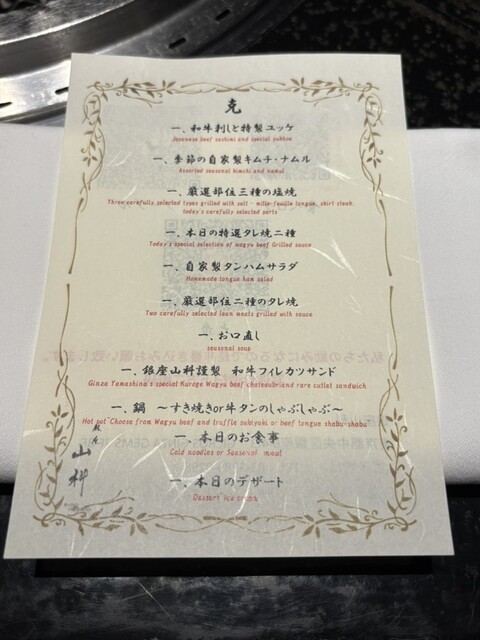 克
一、和牛刺しと特製ユッケ
Japanese beef sashimi and special yukhoe
一、季節の自家製キムチ・ナムル
Assorted seasonal kimchi and namul
一、厳選部位三種の塩焼
Three carefully selected types grilled with salt - mille-feuille tongue, skirt steak,
today's carefully selected parts
一、本日の特選タレ焼二種
Today's special selection of wagyu beef Grilled sauce
一、自家製タンハムサラダ
Homemade tongue ham salad
一、厳選部位二種のタレ焼
Two carefully selected lean meats grilled with sauce
一、お口直し
seasonal soup
一、銀座山科謹製 和牛フィレカツサンド
Ginza Yamashina's special Kuroge Wagyu beef chateaubriand rare cutlet sandwich
一、鍋 〜すき焼きor牛タンのしゃぶしゃぶ〜
Hot pot"Choose from Wagyu beef and truffle sukiyaki or beef tongue shabu-shabu"
一、本日のお食事
Cold noodles or Seasonal meal
一、本日のデザート
Dessert ice cream
銀座
山科